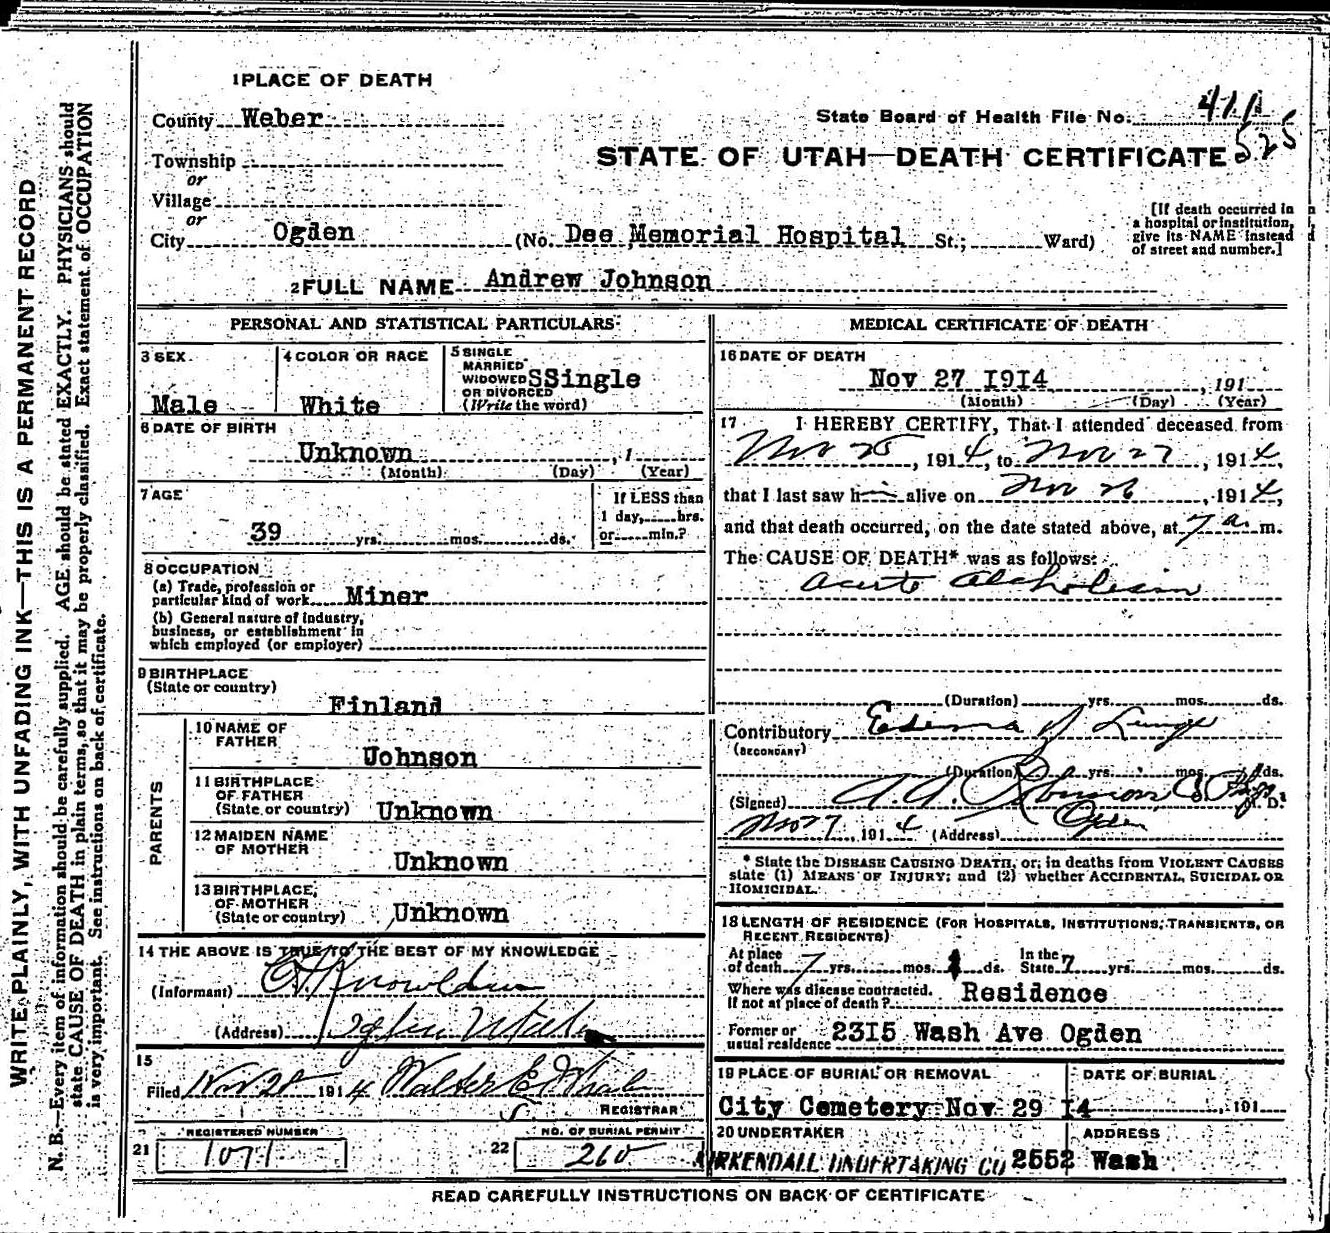 1 PLACE OF DEATH
County Weber
State Board of Health File No. 411
525
Township
STATE OF UTAH—DEATH CERTIFICATE
or
Village
or
City Ogden (No. Dee Memorial Hospital St.; Ward)
[If death occurred in
a hospital or institution,
give its NAME instead
of street and number.]
2 FULL NAME Andrew Johnson
PERSONAL AND STATISTICAL PARTICULARS
3 SEX
Male
4 COLOR OR RACE
White
5 SINGLE
MARRIED
WIDOWED SSingle
OR DIVORCED
(Write the word)
6 DATE OF BIRTH
Unknown , 1
(Month) (Day) (Year)
7 AGE
39 yrs. mos. ds.
If LESS than
1 day, hrs.
or min.?
8 OCCUPATION
(a) Trade, profession or
particular kind of work Miner
(b) General nature of Industry,
business, or establishment in
which employed (or employer)
9 BIRTHPLACE
(State or country)
Finland
PARENTS
10 NAME OF
FATHER
Johnson
11 BIRTHPLACE
OF FATHER
(State or country) Unknown
12 MAIDEN NAME
OF MOTHER
Unknown
13 BIRTHPLACE,
OF MOTHER
(State or country) Unknown
14 THE ABOVE IS TRUE TO THE BEST OF MY KNOWLEDGE
(Informant)
(Address) Ogden Utah
15
Filed Nov 28 1914 Walter E Whalen
REGISTRAR
21 REGISTERED NUMBER
1071
22 NO. OF BURIAL PERMIT
260
MEDICAL CERTIFICATE OF DEATH
16 DATE OF DEATH
Nov 27 I9I4 , 191
(Month) (Day) (Year)
17 I HEREBY CERTIFY, That I attended deceased from
Nov 25, 1914, to Nov 27, 1914,
that I last saw h alive on Nov 26, 1914,
and that death occurred, on the date stated above, at 7 a. m.
The CAUSE OF DEATH* was as follows:
Acute Alcholism
(Duration) yrs. mos. ds.
Contributory Edema of Lungs
(SECONDARY)
(Duration) yrs. mos. ds.
(Signed) Robinson M. D.
Nov 27, 1914 (Address) Ogden
* State the DISEASE CAUSING DEATH, or, in deaths from VIOLENT CAUSES
state (1) MEANS OF INJURY; and (2) whether ACCIDENTAL, SUICIDAL OR
HOMICIDAL.
18 LENGTH OF RESIDENCE (FOR HOSPITALS, INSTITUTIONS, TRANSIENTS, OR
RECENT RESIDENTS)
At place
of death 7 yrs. mos. ds. In the
State 7 yrs. mos. ds.
Where was disease contracted,
if not at place of death? Residence
Former or
usual residence 23I5 Wash Ave Ogden
19 PLACE OF BURIAL OR REMOVAL
DATE OF BURIAL
City Cemetery Nov 29 I4 , 191
20 UNDERTAKER
ADDRESS
KIRKENDALL UNDERTAKING CO 2552 Wash
READ CAREFULLY INSTRUCTIONS ON BACK OF CERTIFICATE
WRITE PLAINLY, WITH UNFADING INK—THIS IS A PERMANENT RECORD
N. B.—Every item of information should be carefully supplied. AGE should be stated EXACTLY. PHYSICIANS should
state CAUSE OF DEATH in plain terms, so that it may be properly classified. Exact statement of OCCUPATION
is very important. See instructions on back of certificate.